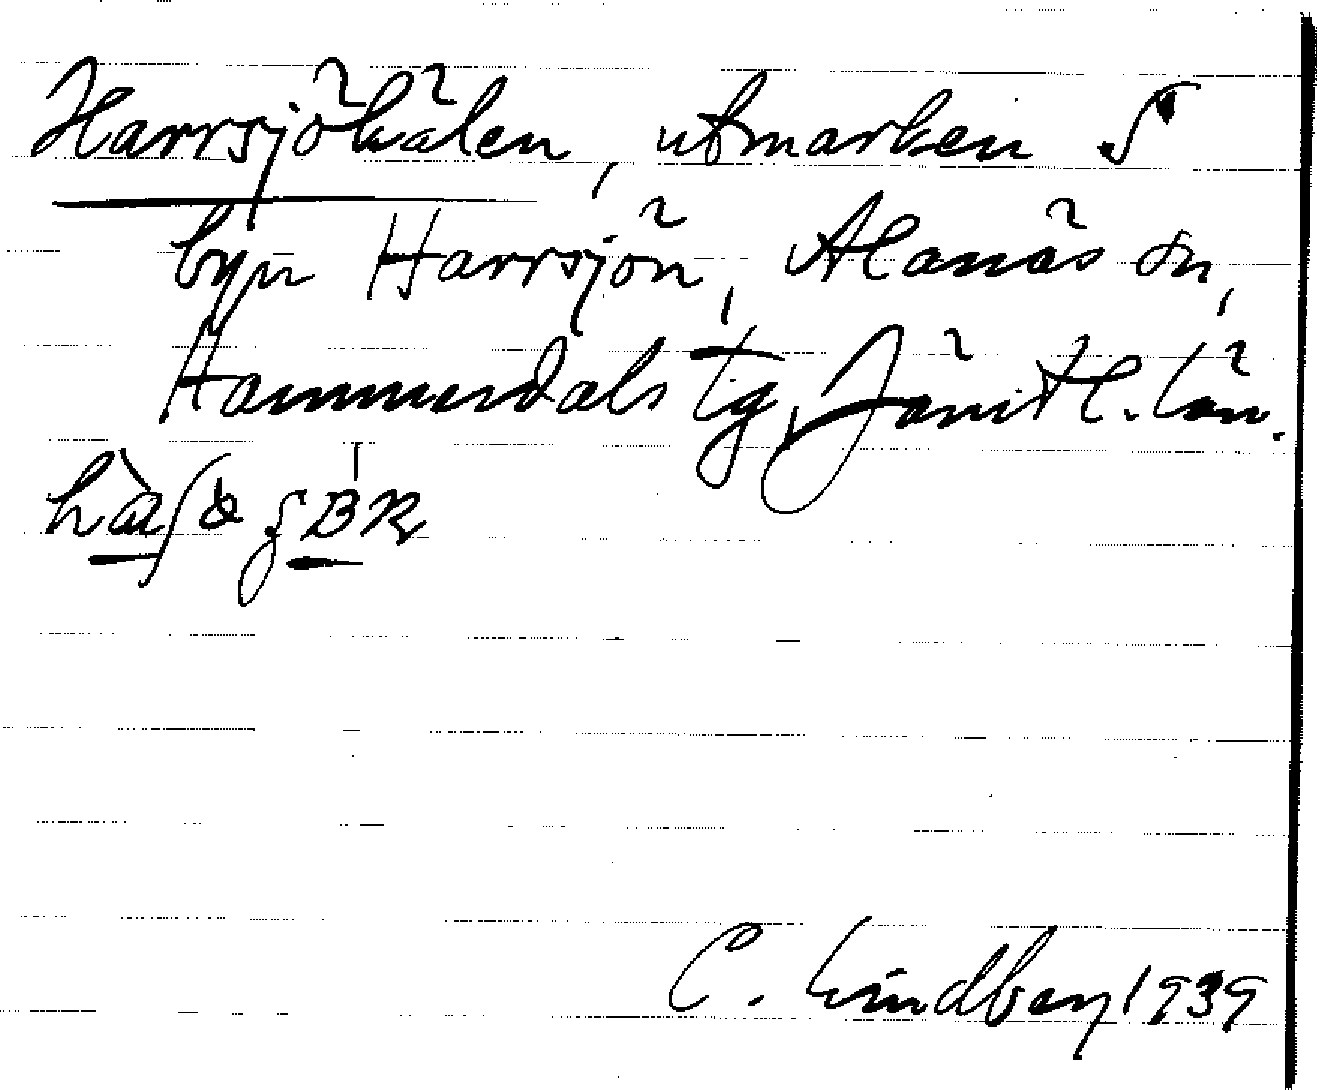 Harrsjöhålen, utmarken S
byn Harrsjön, Alanäs sn,
Hammerdals tg, Jämtl. län.
C. Lindberg 1939